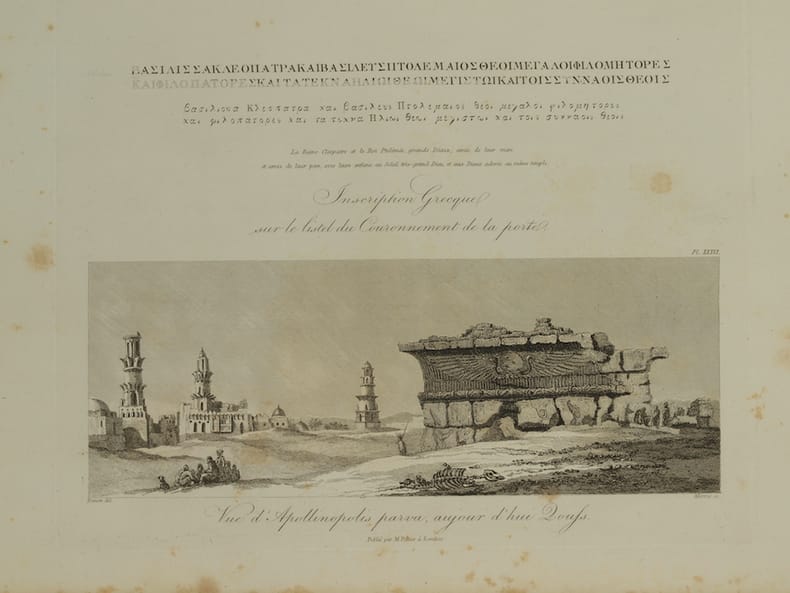 ΒΑΣΙΛΙΣΣΑΚΛΕΟΠΑΤΡΑΚΑΙΒΑΣΙΛΕΥΣΠΤΟΛΕΜΑΙΟΣΘΕΟΙΜΕΓΑΛΟΙΦΙΛΟΜΗΤΟΡΕΣ
ΚΑΙΦΙΛΟΠΑΤΟΡΕΣΚΑΙΤΑΤΕΚΝΑΗΛΙΩΙΘΕΩΙΜΕΓΙΣΤΩΙΚΑΙΤΟΙΣΣΥΝΝΑΟΙΣΘΕΟΙΣ
Βασιλισσα Κλεοπατρα και βασιλευς Πτολεμαιος θεοι μεγαλοι φιλομητορες
και φιλοπατορες και τα τεκνα Ηλιωι θεωι μεγιστωι και τοις συνναοις θεοις
La Reine Cléopatre et le Roi Ptolémée, grands Dieux, amis de leur mere
et amis de leur pere, avec leurs enfans au Soleil très-grand Dieu, et aux Dieux adorés au même temple.
Inscription Grecque
sur le listel du Couronnement de la porte.
Pl. XXIII
Denon del.
Vue d'Apollinopolis parva, aujour d'hui Qouss.
Publié par M. Peltier à Londres